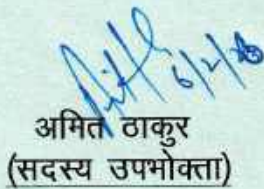 6/2/
अमित ठाकुर
(सदस्य उपभोक्ता)